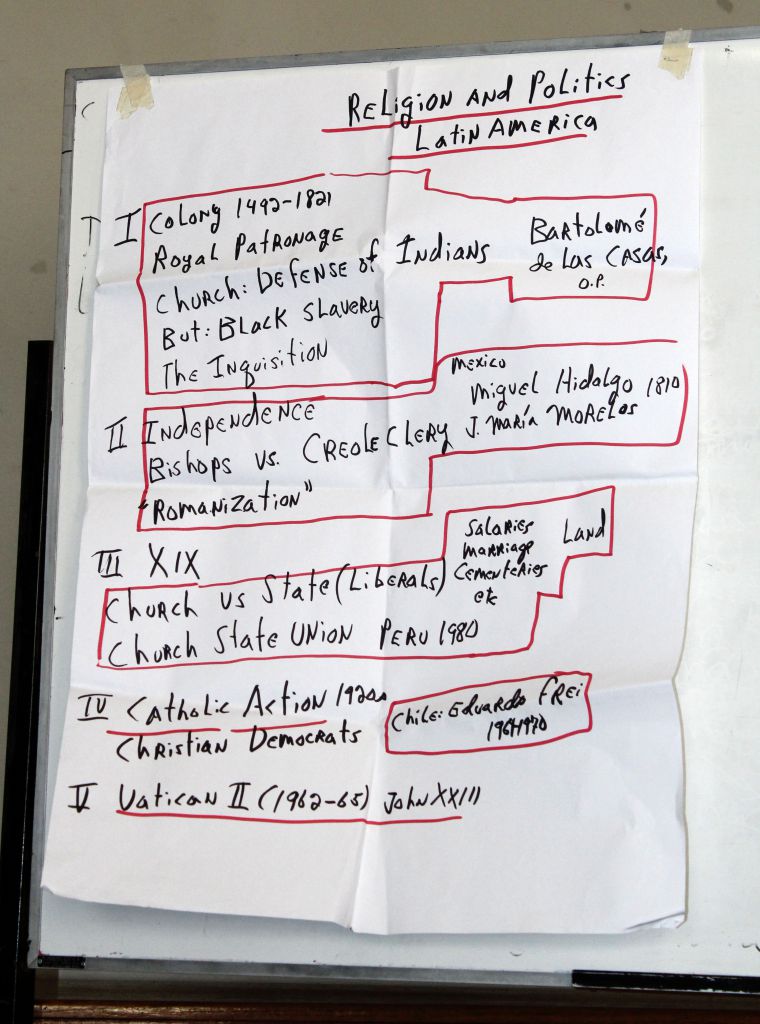 Religion and Politics
Latin America
I Colony 1492-1821
Royal Patronage
Church: Defense of Indians
But: Black Slavery
The Inquisition
Bartolomé
de Las Casas,
O.P.
II Independence
Bishops vs. Creole Clery
"Romanization"
Mexico
Miguel Hidalgo 1810
J. María Morelos
III XIX
Church vs State (Liberals)
Church State Union Peru 1980
Salaries
Marriage
Cementeries
etc
Land
IV Catholic Action 1920s
Christian Democrats
Chile: Eduardo Frei
1964-1970
V Vatican II (1962-65) John XXIII